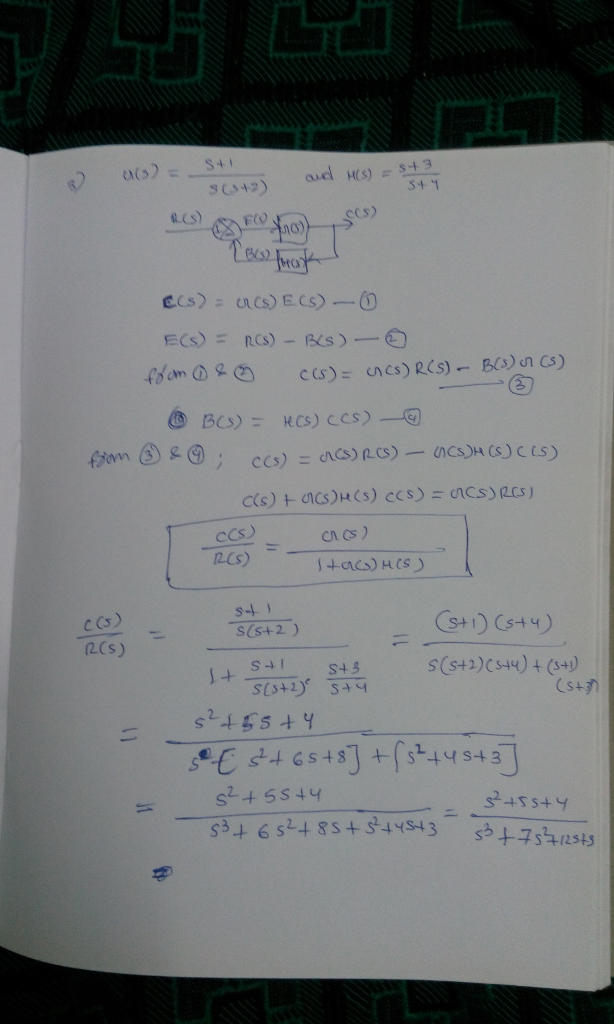 a) G(s) = (s+1)/(s(s+2)) and H(s) = (s+3)/(s+4)
R(s) E(s) G(s) C(s)
B(s) H(s)
C(s) = G(s) E(s) — ①
E(s) = R(s) - B(s) — ②
from ① & ② C(s) = G(s) R(s) - B(s) G(s) — ③
B(s) = H(s) C(s) — ④
from ③ & ④ ; C(s) = G(s) R(s) - G(s) H(s) C(s)
C(s) + G(s) H(s) C(s) = G(s) R(s)
C(s)/R(s) = G(s)/(1+G(s) H(s))
C(s)/R(s) = ((s+1)/(s(s+2)))/(1 + (s+1)/(s(s+2)) · (s+3)/(s+4)) = ((s+1)(s+4))/(s(s+2)(s+4) + (s+1)(s+3))
= (s²+5s+4)/(s[s²+6s+8] + [s²+4s+3])
= (s²+5s+4)/(s³+6s²+8s+s²+4s+3) = (s²+5s+4)/(s³+7s²+12s+3)